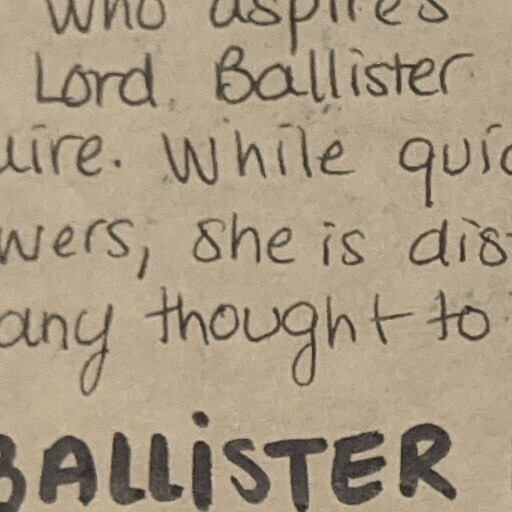 who aspires
Lord Ballister
uire. While quic
wers, she is dis
any thought to
BALLISTER